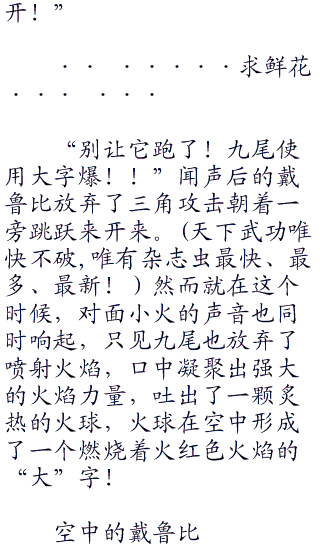 开！”
· · · · · · · 求鲜花
· · · · · ·
“别让它跑了！九尾使
用大字爆！！”闻声后的戴
鲁比放弃了三角攻击朝着一
旁跳跃来开来。(天下武功唯
快不破,唯有杂志虫最快、最
多、最新！)然而就在这个
时候，对面小火的声音也同
时响起，只见九尾也放弃了
喷射火焰，口中凝聚出强大
的火焰力量，吐出了一颗炙
热的火球，火球在空中形成
了一个燃烧着火红色火焰的
“大”字！
空中的戴鲁比